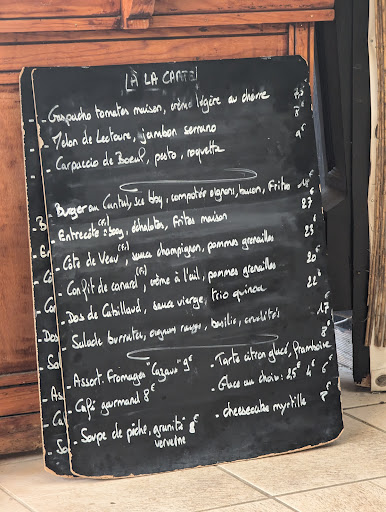 À LA CARTE
- Gaspacho tomates maison, crème légère au chèvre
- Melon de Lectoure, jambon serrano 8€
- Carpaccio de Boeuf, pesto, roquette 9€
- Burger au Cantal, sce bbq, compotée oignons, bacon, frites
- Entrecôte, échalotes, frites maison 27€
- Côte de Veau (Fr), sauce champignon, pommes grenailles 23€
- Confit de canard (Fr), crème à l'ail, pommes grenailles 20€
- Dos de Cabillaud, sauce vierge, trio quinoa 22€
- Salade burratta, basilic, crudités 17€
- Assort. Fromages "Cazaux" 9€
- Café gourmand 8€
- Soupe de pêche, granité verveine 8€
- Tarte citron glacé, framboise 8€
- Glace au choix: 2,5€ 4€ 6€
- cheesecake myrtille 8€